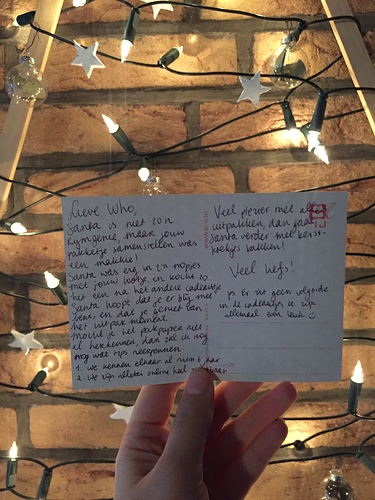 Lieve Who,
Santa is niet zo'n
rijmgenie, maar jouw
pakketje samenstellen was
een makkie!
Santa was erg in z'n nopjes
met jouw lijstje, en kocht zo
het een na het andere cadeautje
Santa hoopt dat je er blij mee
bent, en dat je geniet van
het uitpak moment.
Mocht je het pakpapier niet
al herkennen, dan zal ik nog
nog wat tips neerpennen.
1. We kennen elkaar al ruim 6 jaar
2. We zijn alletwee online heel
Veel plezier met al
uitpakken, dan gaat
Santa verder met kerst-
koekjes bakken!
Veel liefs!
ps Er zit geen volgorde
in de cadeautjes ze zijn
allemaal even leuk